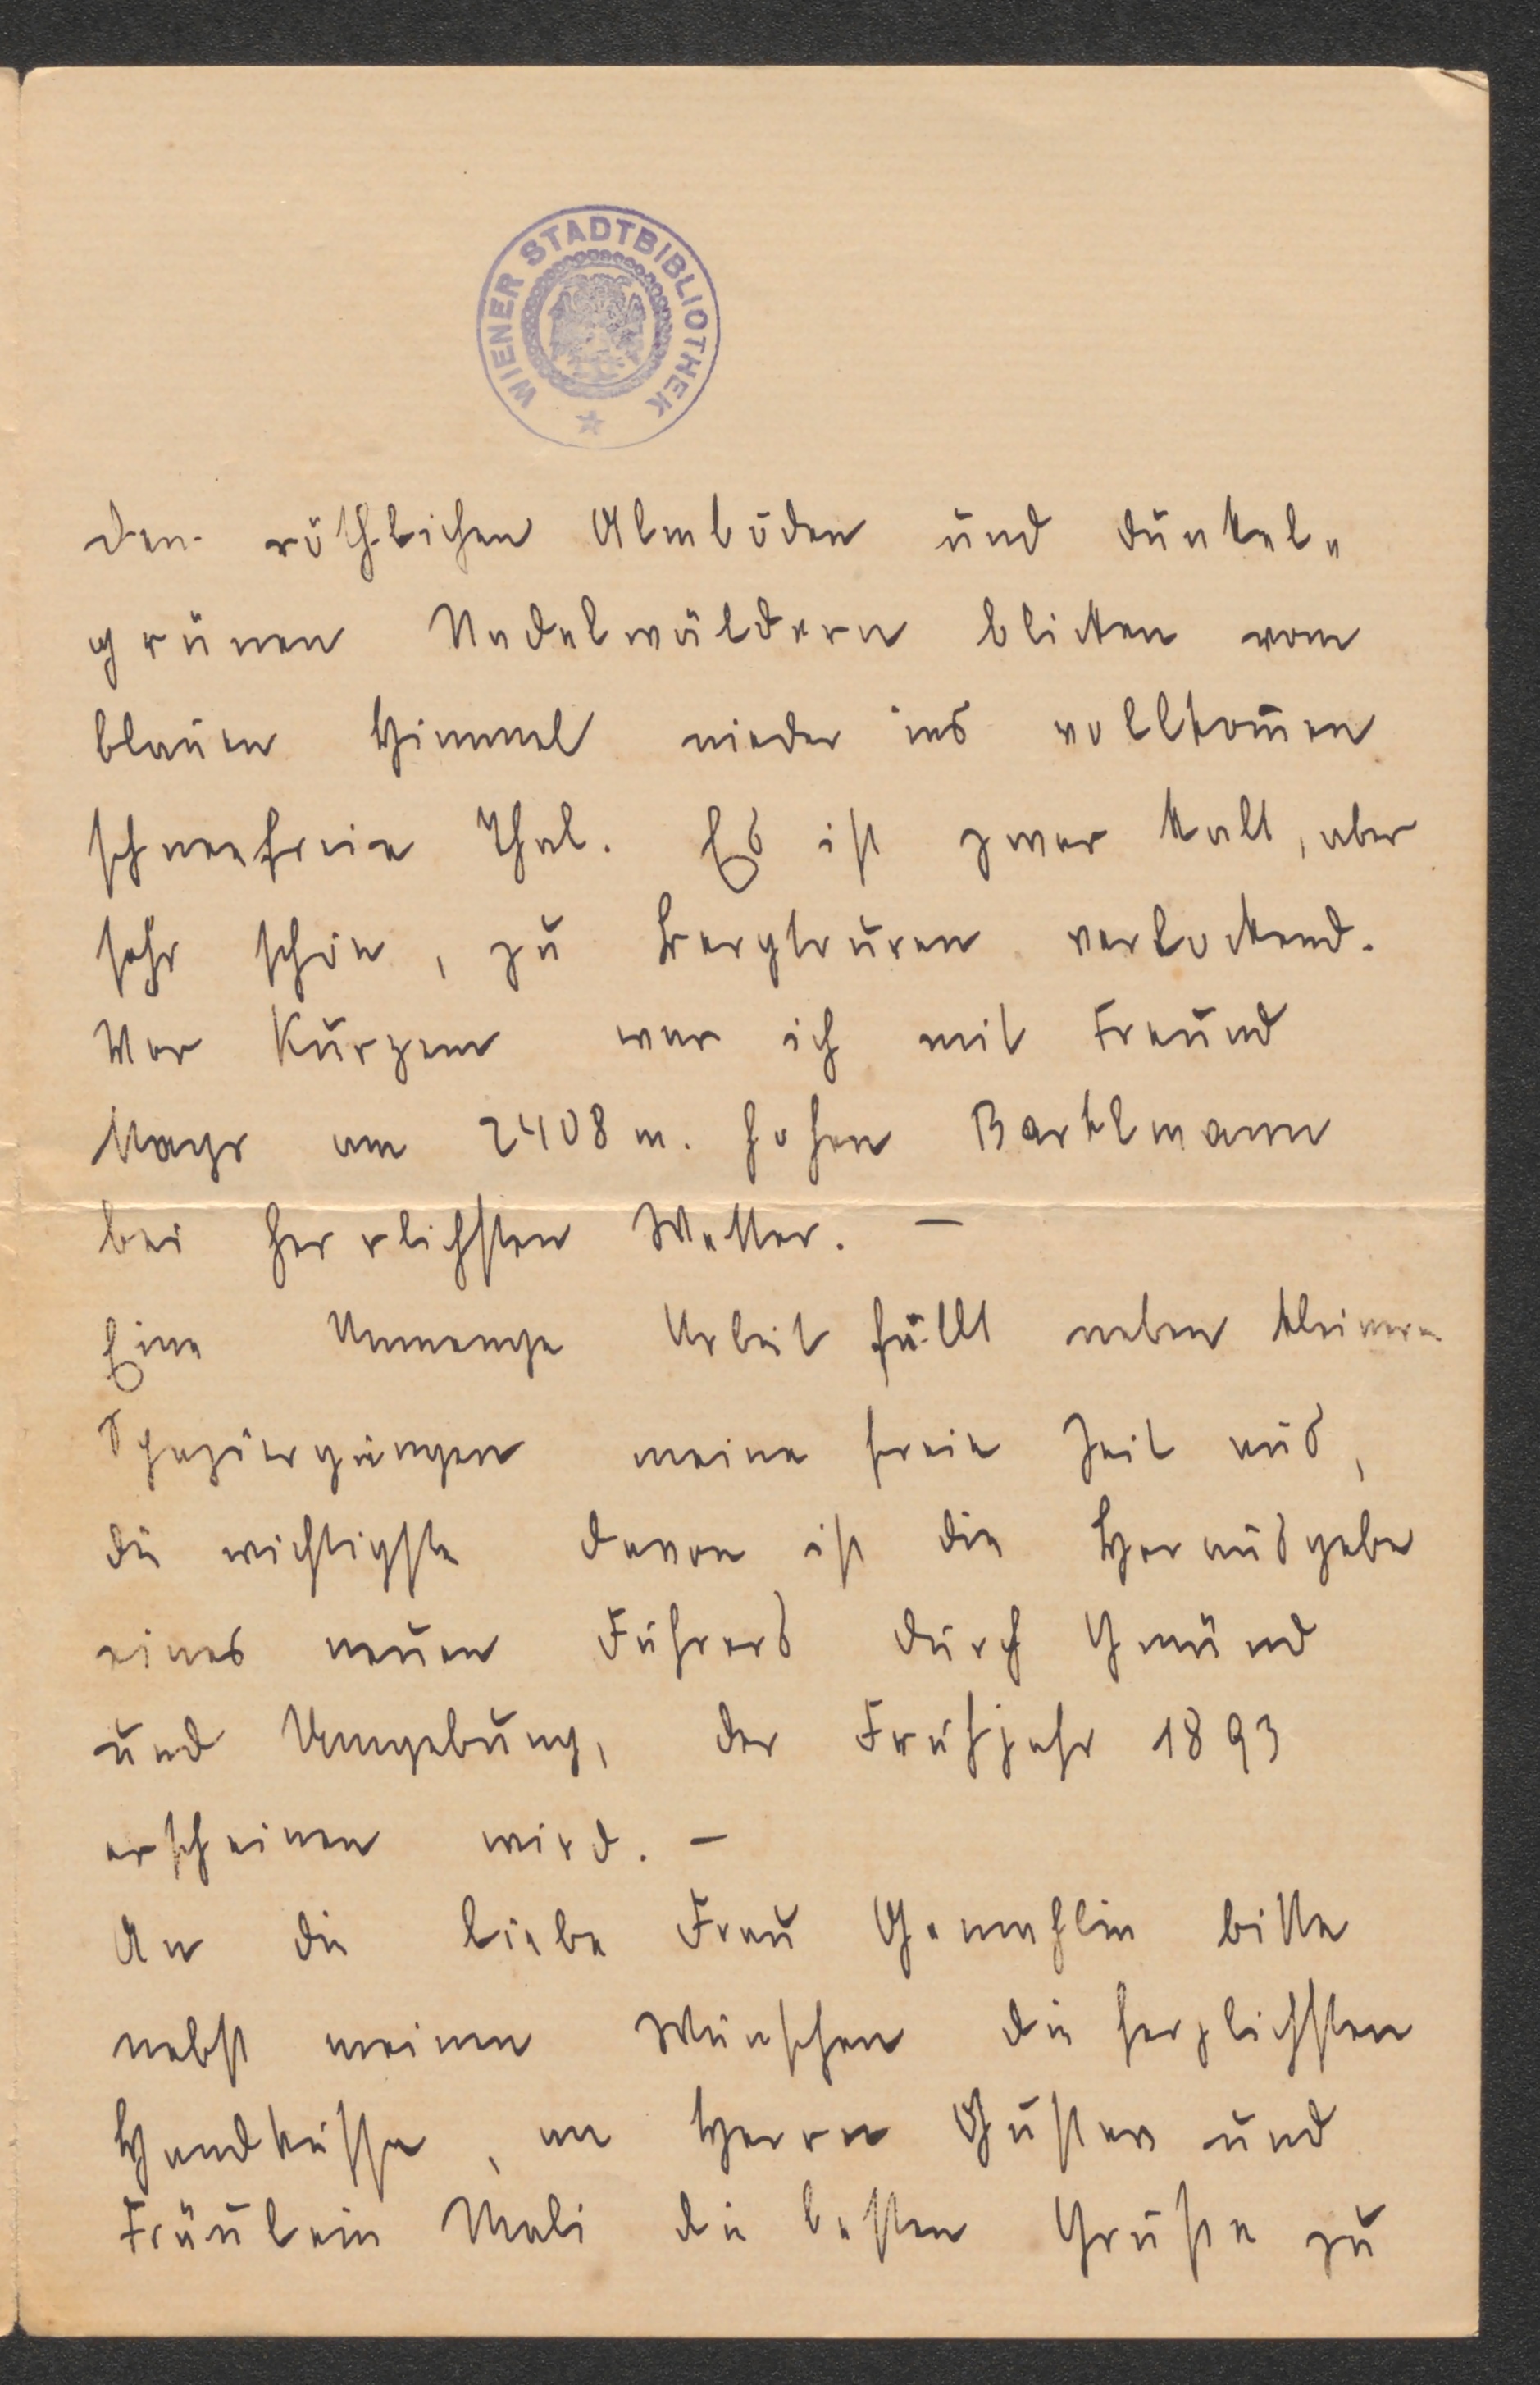 WIENER STADTBIBLIOTHEK
den röthlichen Almböden und dunkel-
grünen Nadelwäldern blicken vom
blauen Himmel nieder ins vollkom̄en
schneefreie Thal. Es ist zwar kalt, aber
sehr schön, zu Bergtouren verlockend.
Vor Kurzem war ich mit Freund
Mayr am 2408 m. hohen Bartlmann
bei herrlichsten Wetter. —
Eine Unmenge Arbeit füllt neben kleineren
Spaziergängen meine freie Zeit aus,
die wichtigste davon ist die Herausgabe
eines neuen Führers durch Gmünd
und Umgebung, der Frühjahr 1893
erscheinen wird. —
An die liebe Frau Gemahlin bitte
nebst meinen Wünschen die herzlichsten
Handküsse, an Herrn Gustav und
Fräulein Mali die besten Grüße zu